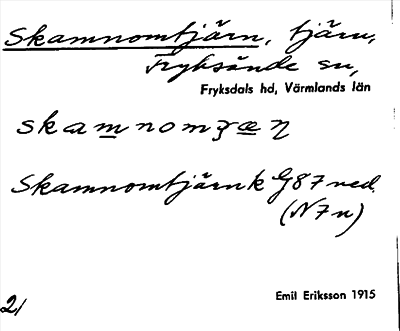 Skamnomtjärn, tjärn,
Fryksände sn,
Fryksdals hd, Värmlands län
skamnomʒæŋ
Skamnomtjärn k G87 ned
(N7n)
Emil Eriksson 1915
2/